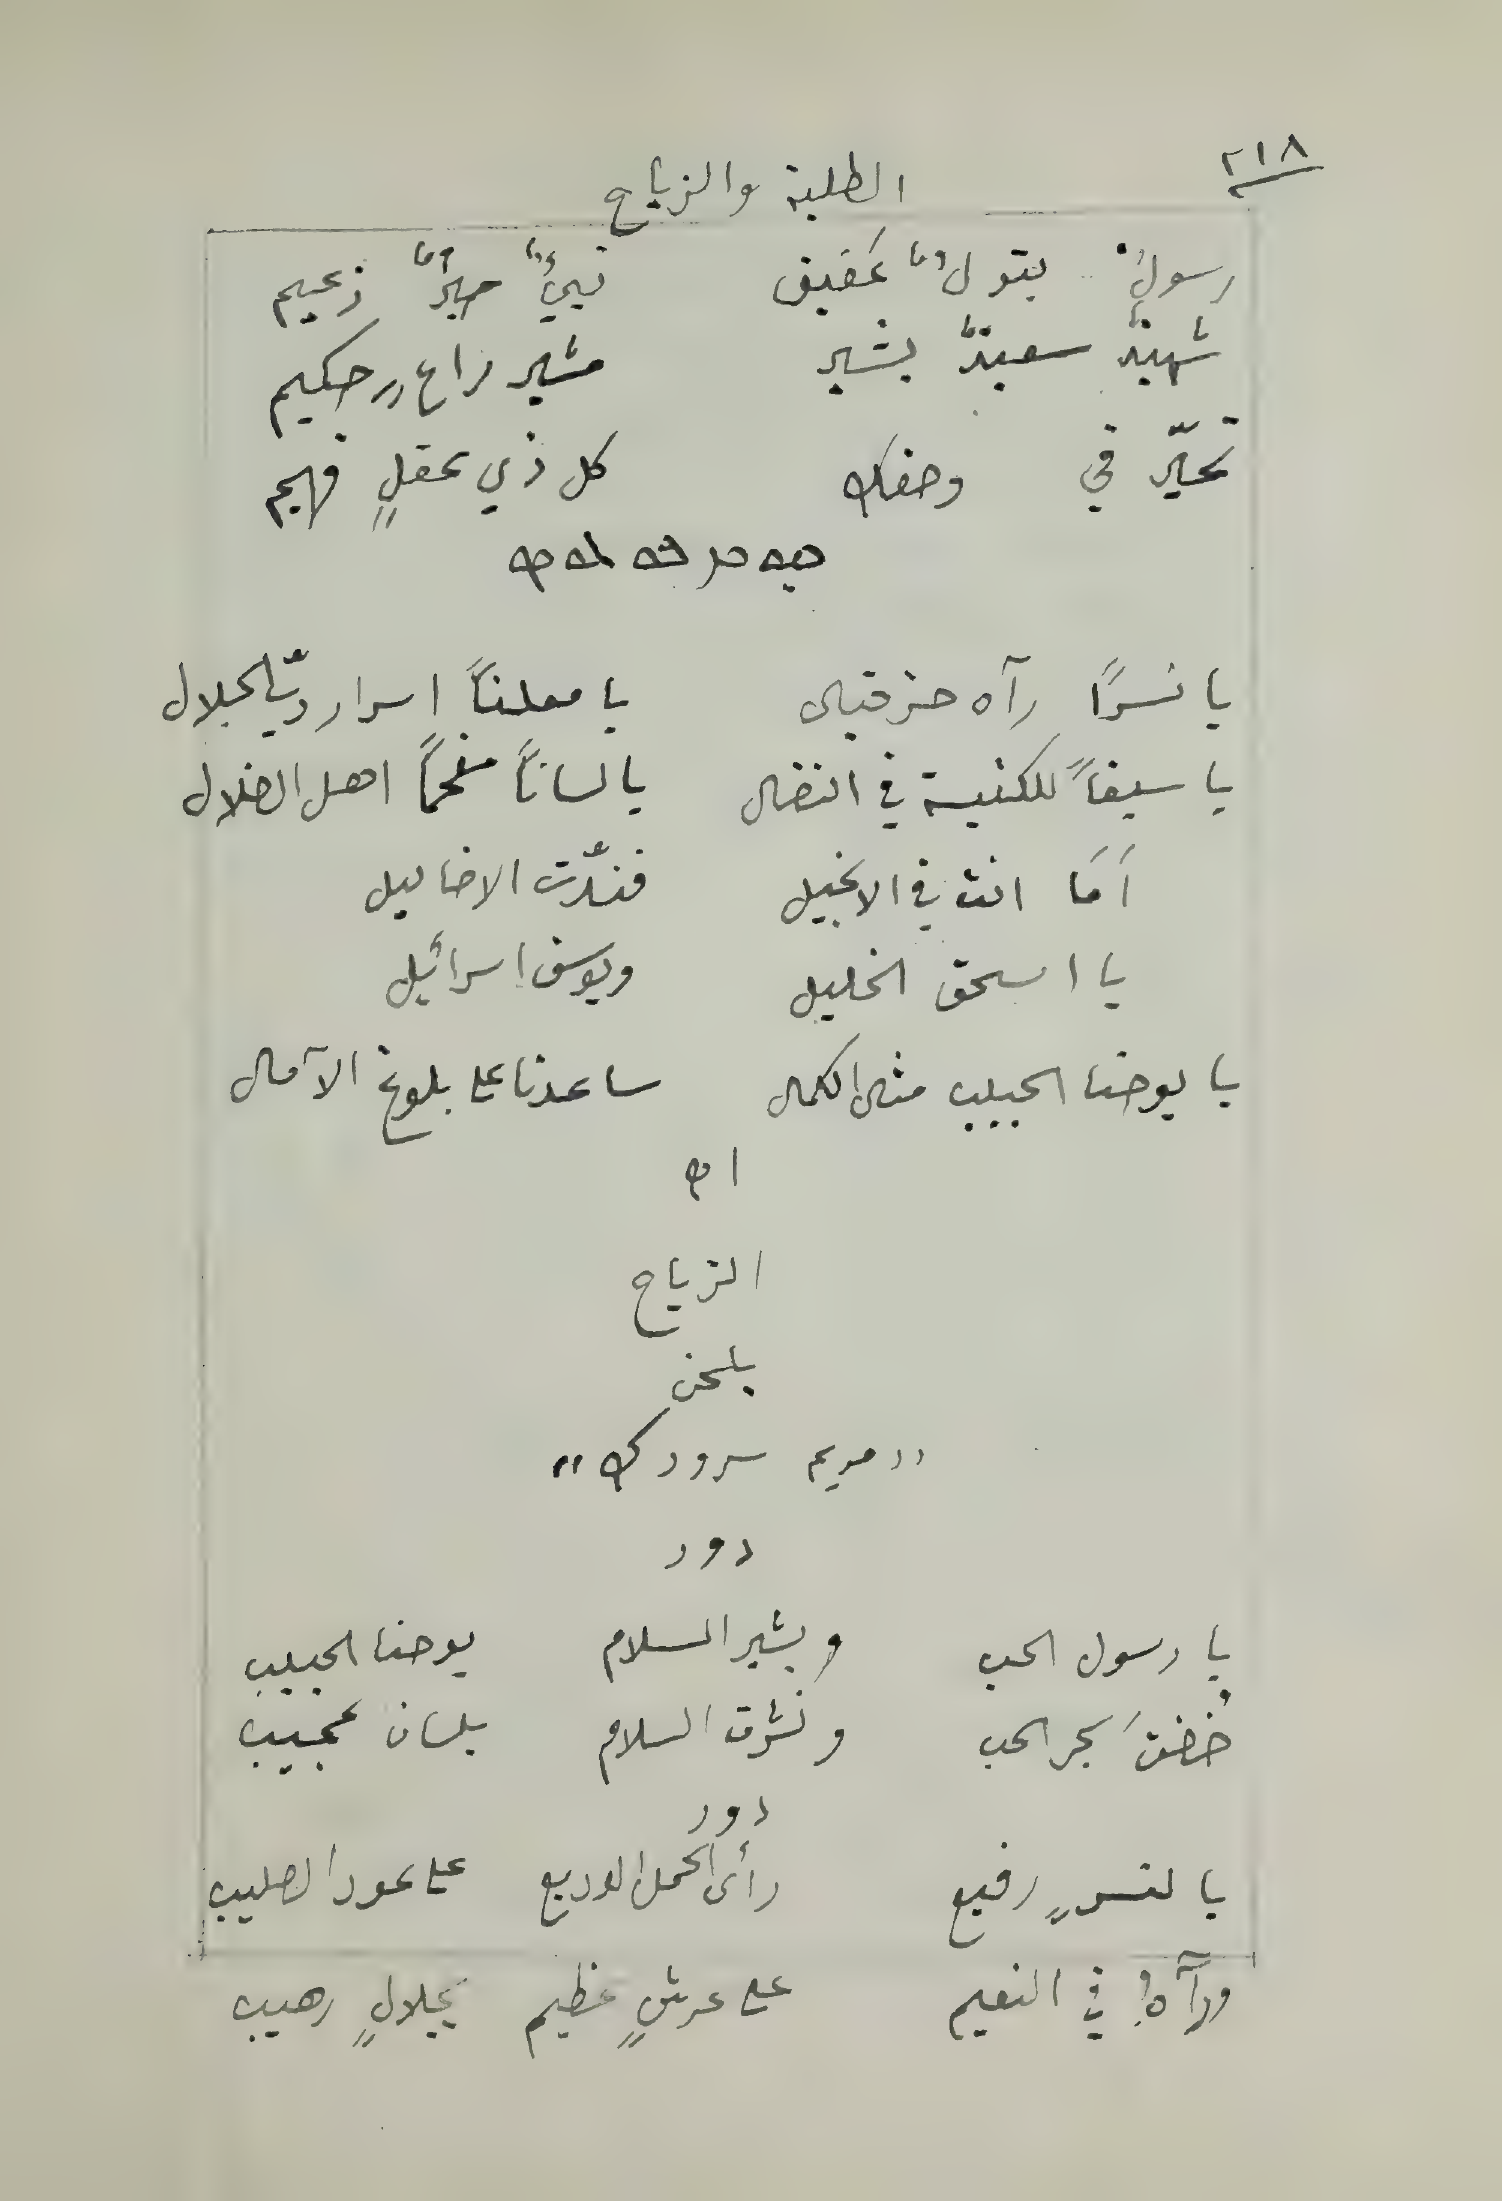 ٢١٨
الطلبة والزياح
رسولٌ بتولٌ عفيف نبيٌّ حبرٌ زعيم
شهيدٌ سعيدٌ بشير مشير راعٍ حكيم
تحيّر في وصفك كل ذي عقلٍ فهيم
يا نسرًا رآه حزقيال يا معلناً اسرار ربّ الجلال
يا سيفاً للكنيسة في النضال يا لساناً مفحماً اهل الضلال
أَمَا انت في الانجيل فندّت الاضاليل
يا اسحق الخليل ويوسف اسرائيل
يا يوحنا الحبيب مثال الكمال ساعدنا على بلوغ الآمال
الزياح
بلحن
"مريم سرورك"
دور
يا رسول الحب وبشير السلام يوحنا الحبيب
خُضتَ بحر الحب ونشرت السلام بلسان عجيب
دور
يا لنسرٍ رفيع رأى الحمل الوديع على عود الصليب
ورآه في النعيم على عرشٍ عظيم بجلالٍ رهيب